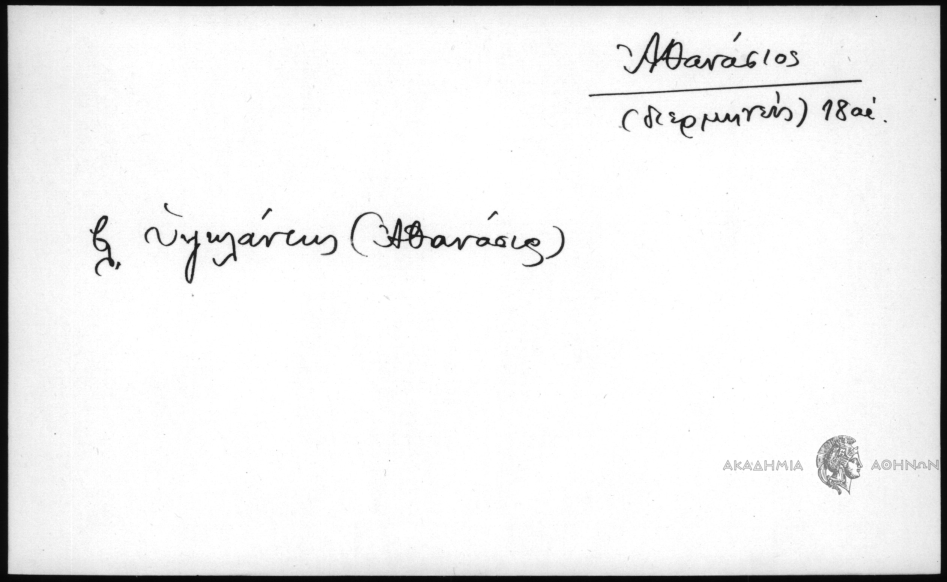 Ἀθανάσιος
(διερμηνεύς) 18 αἰ.
βλ. Ὑψηλάντης (Ἀθανάσιος)
ΑΚΑΔΗΜΙΑ ΑΘΗΝΩΝ